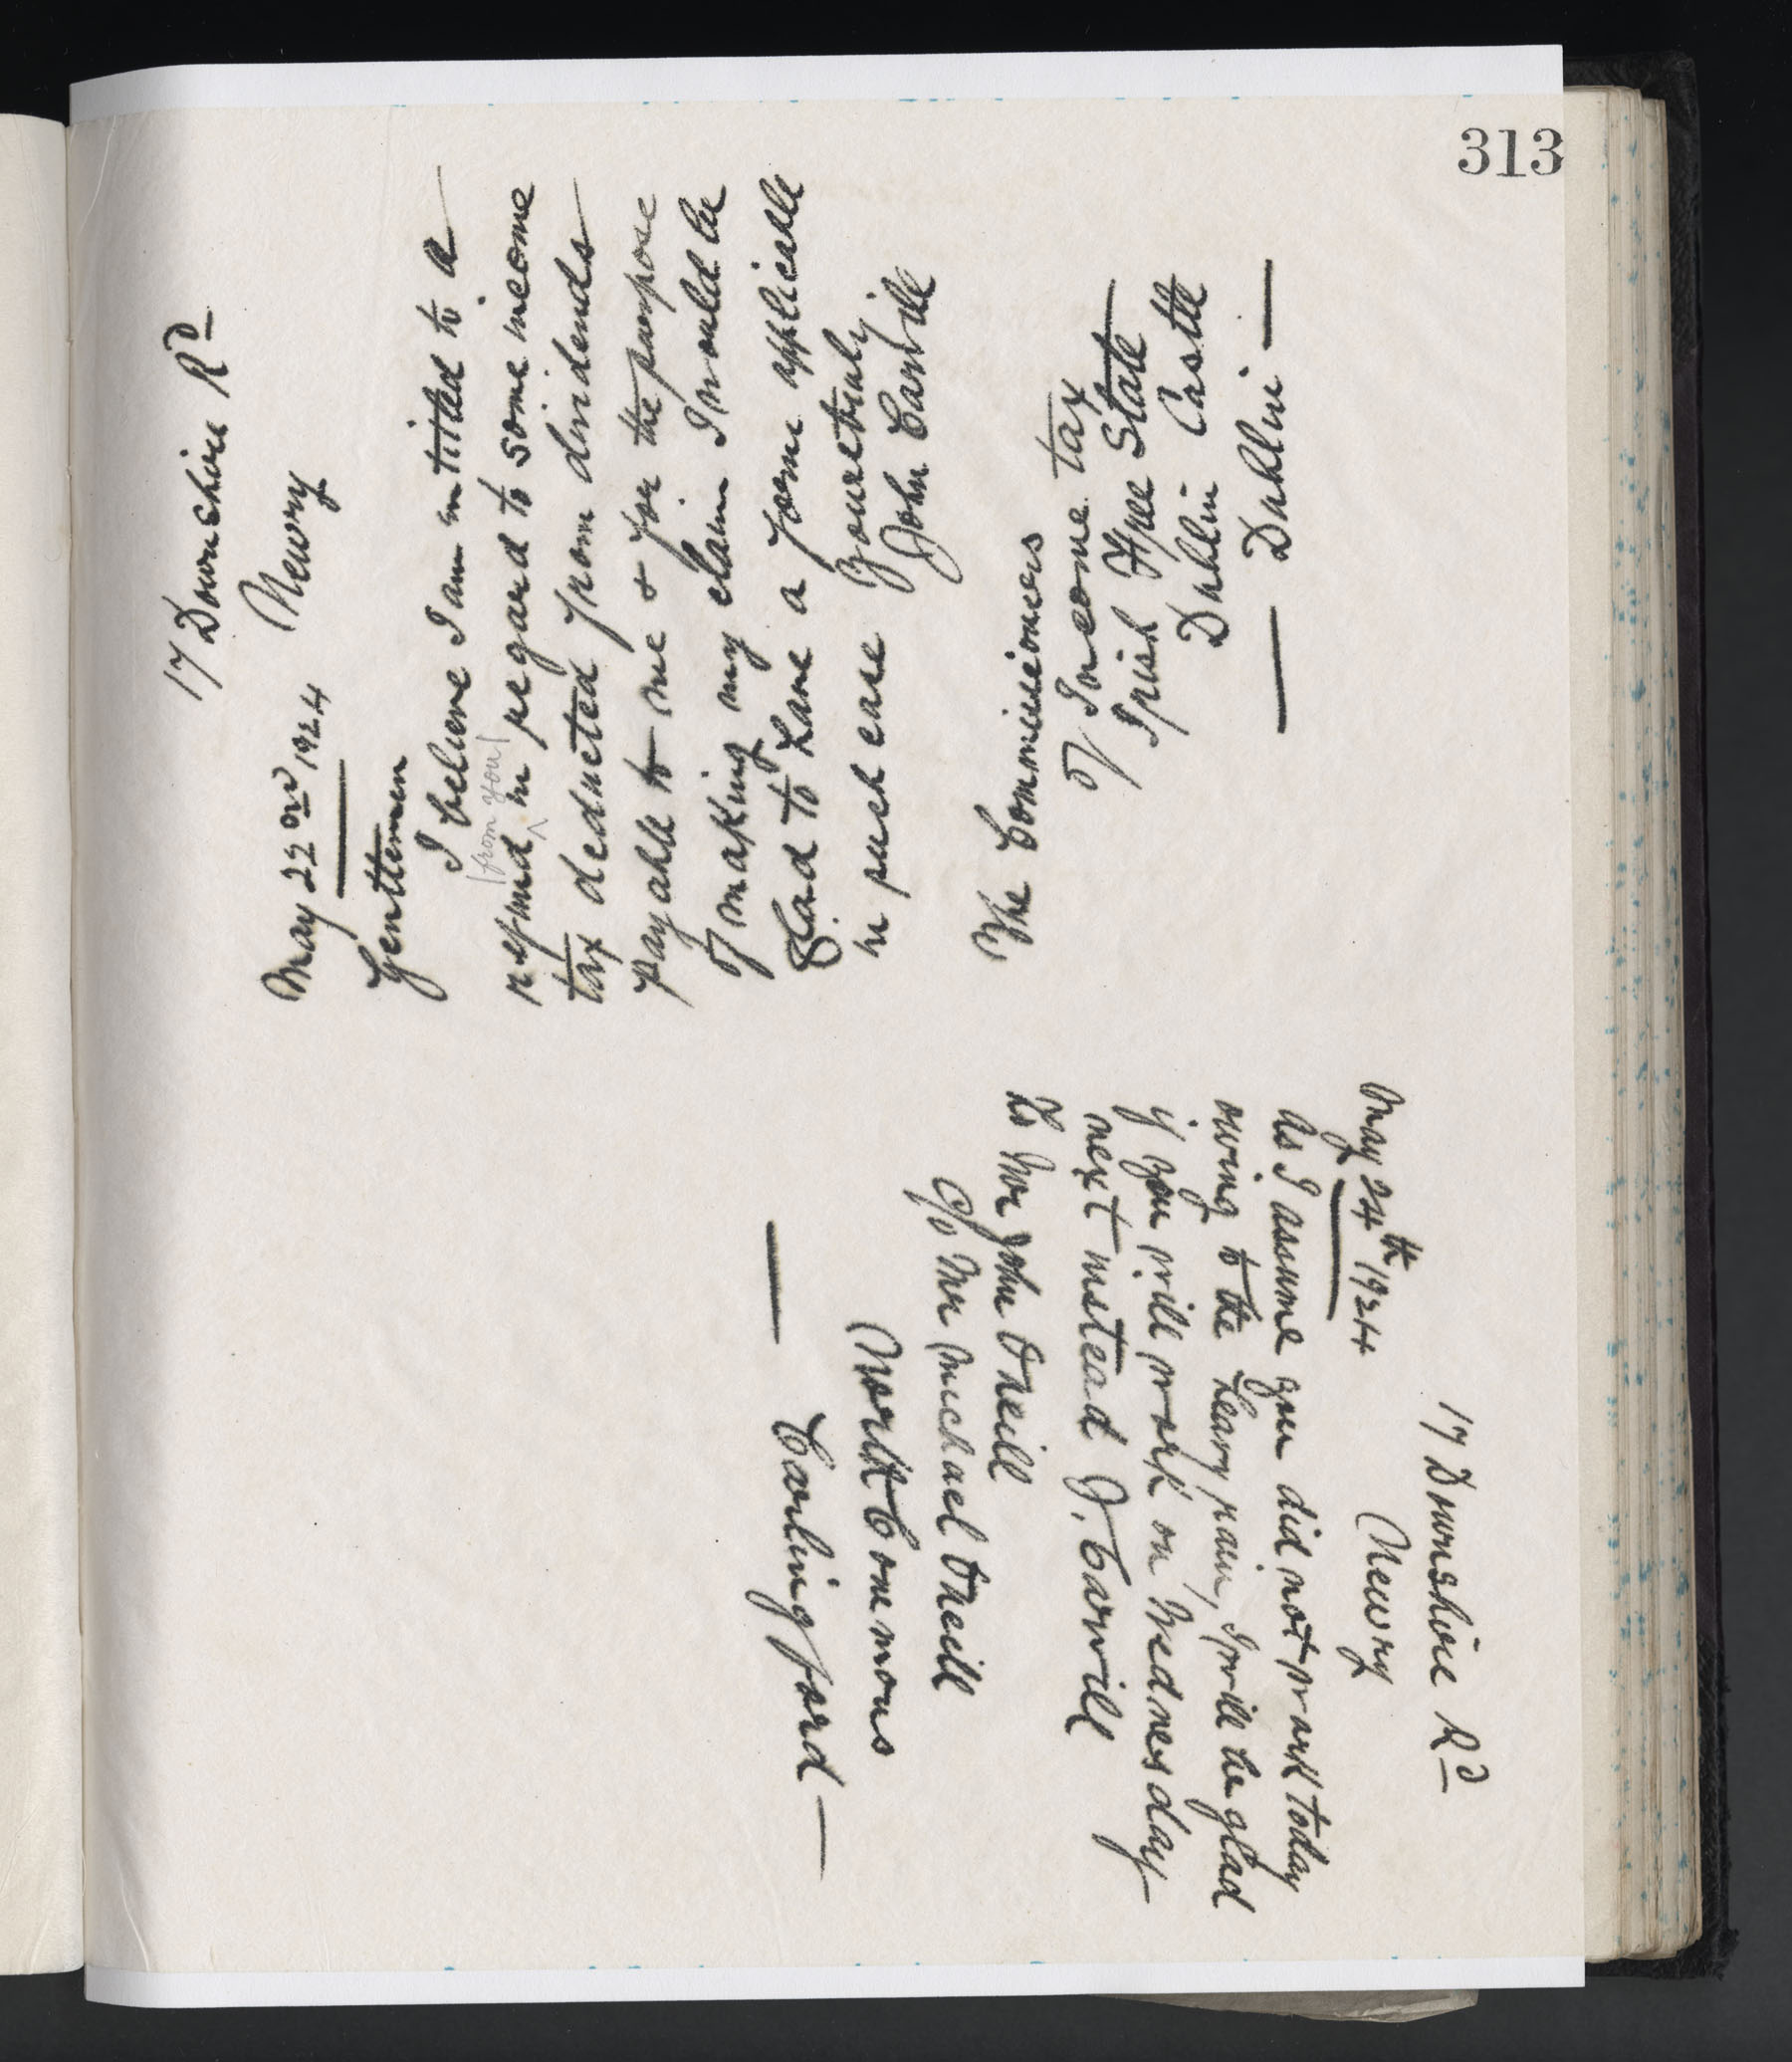 313
17 Downshire Rd
Newry
May 22nd 1924
Gentlemen
I believe I am intitled to a
refund in regard to some income
from you
tax deducted from dividends
payable to me & for the purpose
of making my claim I would be
glad to have a form applicable
in such case Yours truly
John Carvill
The Commissioners
of Income tax
Irish Free State
Dublin Castle
Dublin
17 Downshire Rd
Newry
May 24th 1924
As I assume you did not work today
owing to the heavy rain, I will be glad
if you will work on Wednesday
next instead J. Carvill
To Mr John O'Neill
c/o Mr Michael O'Neill
North Commons
Carlingford